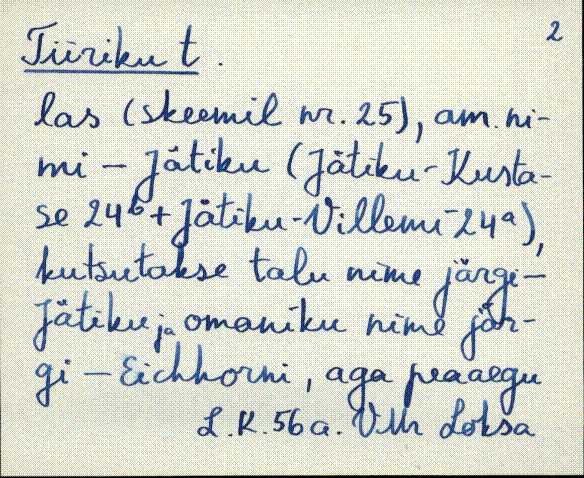 2
Tiiriku t.
las (skeemil nr. 25), am. ni-
mi - Jätiku (Jätiku-Kusta-
se 24ᵇ + Jätiku-Villemi-24ᵃ),
kutsutakse talu nime järgi-
Jätiku ja omaniku nime jär-
gi - Eichhorni, aga peaaegu
L.K. 56 a. VMr Loksa